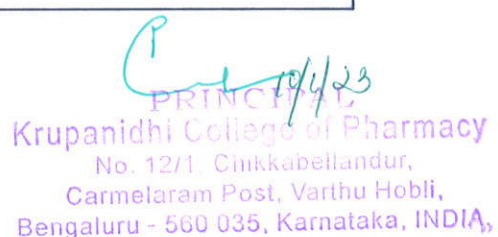 10/1/23
PRINCIPAL
Krupanidhi College of Pharmacy
No. 12/1, Chikkabellandur,
Carmelaram Post, Varthu Hobli,
Bengaluru - 560 035, Karnataka, INDIA,,